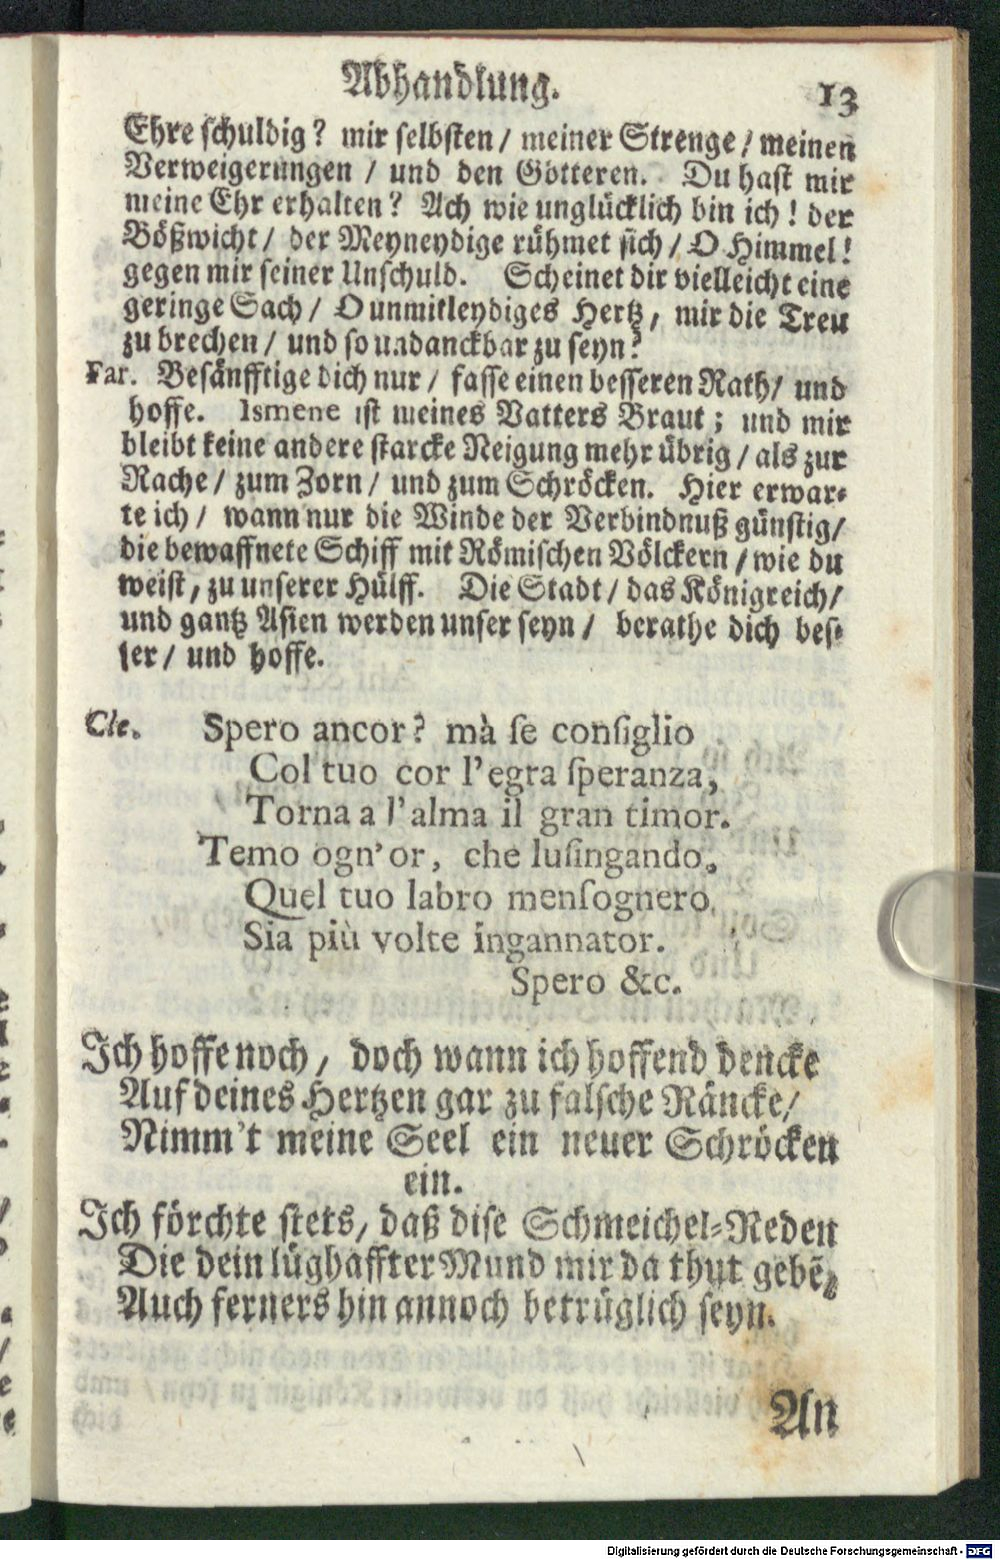 Abhandlung. 13
Ehre schuldig? mir selbsten / meiner Strenge / meinen
Verweigerungen / und den Götteren. Du hast mir
meine Ehr erhalten? Ach wie unglücklich bin ich! der
Bößwicht / der Meyneydige rühmet sich / O Himmel!
gegen mir seiner Unschuld. Scheinet dir vielleicht eine
geringe Sach / O unmitleydiges Hertz, mir die Treu
zu brechen / und so undanckbar zu seyn?
Far. Besänfftige dich nur / fasse einen besseren Rath / und
hoffe. Ismene ist meines Vatters Braut; und mir
bleibt keine andere starcke Neigung mehr übrig / als zur
Rache / zum Zorn / und zum Schröcken. Hier erwar-
te ich / wann nur die Winde der Verbindnuß günstig /
die bewaffnete Schiff mit Römischen Völckern / wie du
weist, zu unserer Hülff. Die Stadt / das Königreich /
und gantz Asien werden unser seyn / berathe dich bes-
ser / und hoffe.
Cle. Spero ancor? mà se consiglio
Col tuo cor l'egra speranza,
Torna a l'alma il gran timor.
Temo ogn'or, che lusingando,
Quel tuo labro mensognero,
Sia più volte ingannator.
Spero &c.
Ich hoffe noch, doch wann ich hoffend dencke
Auf deines Hertzen gar zu falsche Räncke /
Nimm't meine Seel ein neuer Schröcken
ein.
Ich förchte stets, daß dise Schmeichel-Reden
Die dein lüghaffter Mund mir da thut gebē,
Auch ferners hin annoch betrüglich seyn.
An
Digitalisierung gefördert durch die Deutsche Forschungsgemeinschaft - DFG